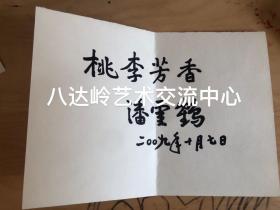 桃李芳香
八达岭艺术交流中心
潘霍鹤
二00九年十月七日